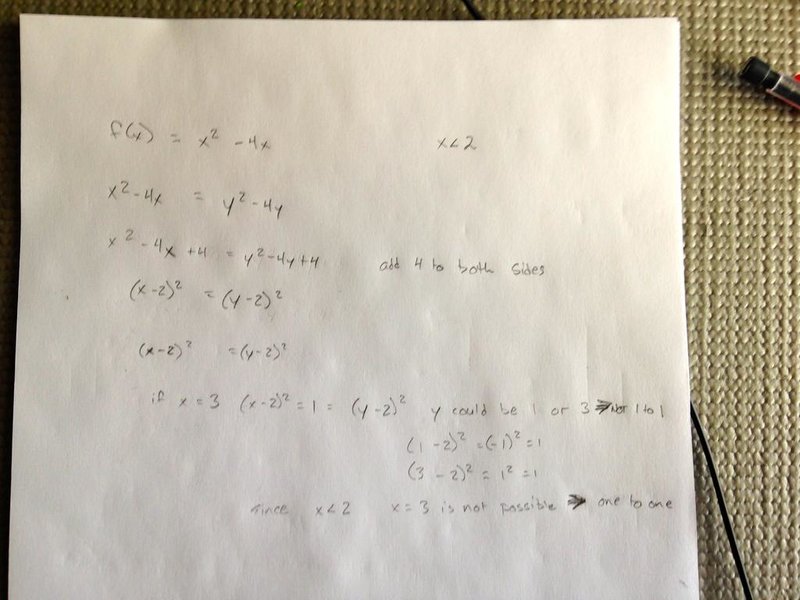 f(x) = x² - 4x x < 2
x² - 4x = y² - 4y
x² - 4x + 4 = y² - 4y + 4 add 4 to both sides
(x-2)² = (y-2)²
(x-2)² = (y-2)²
if x = 3 (x-2)² = 1 = (y-2)² y could be 1 or 3 ⇒ Not 1 to 1
(1 - 2)² = (-1)² = 1
(3 - 2)² = 1² = 1
since x < 2 x = 3 is not possible ⇒ one to one